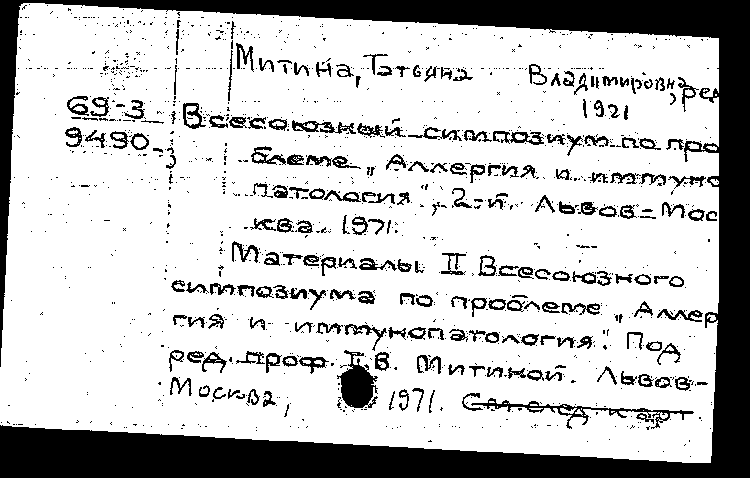 Митина, Татьяна Владимировна, ред
1921
69-3
9490-3
Всесоюзный симпозиум по про
блеме „Аллергия и иммуно
патология", 2-й. Львов-Мос
ква. 1971.
Материалы II Всесоюзного
симпозиума по проблеме „Аллер
гия и иммунопатология". Под
ред. проф. Т.В. Митиной. Львов-
Москва, 1971. См. след. карт.